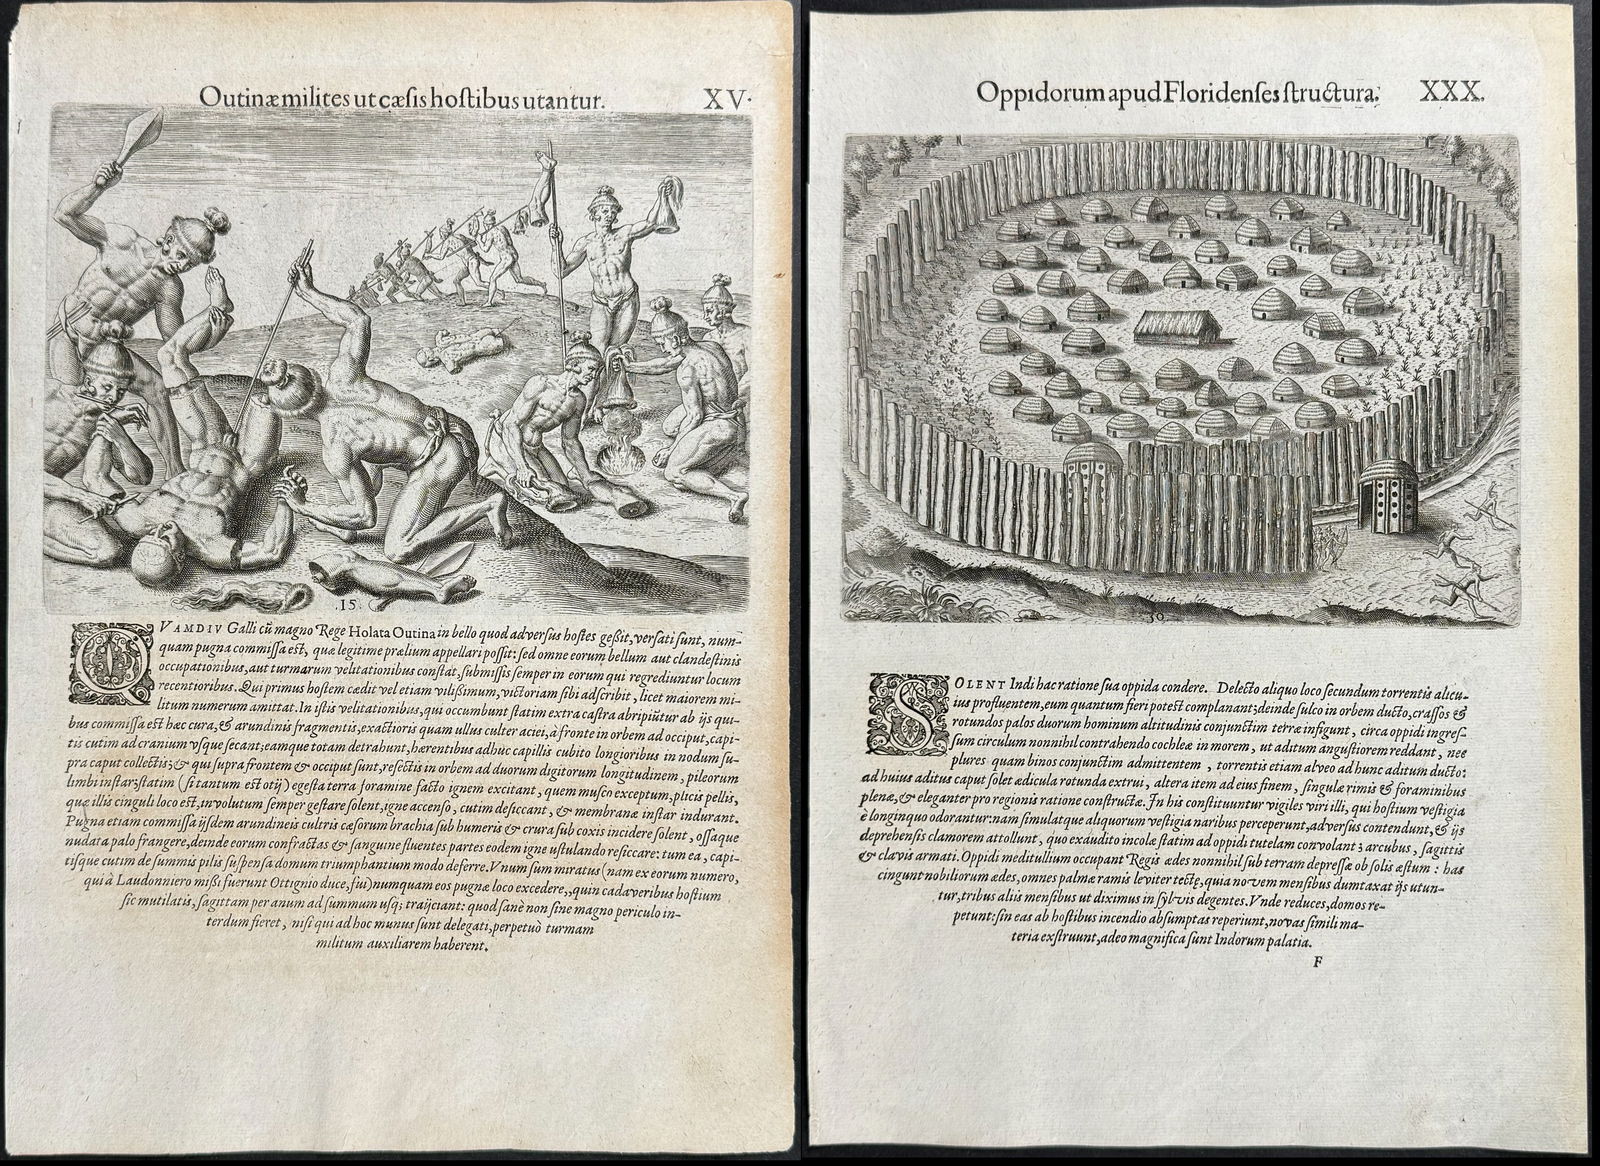 Outinæ milites ut cæsis hostibus utantur. XV.
.15.
QVAMDIV Galli cū magno Rege Holata Outina in bello quod adversus hostes geßit, versati sunt, num-
quam pugna commissa est, quæ legitime prælium appellari possit: sed omne eorum bellum aut clandestinis
occupationibus, aut turmarum velitationibus constat, submissis semper in eorum qui regrediuntur locum
recentioribus. Qui primus hostem cædit vel etiam vilißimum, victoriam sibi adscribit, licet maiorem mi-
litum numerum amittat. In istis velitationibus, qui occumbunt statim extra castra abripiūtur ab ijs qui-
bus commissa est hæc cura, & arundinis fragmentis, exactioris quam ullus culter aciei, à fronte in orbem ad occiput, capi-
tis cutim ad cranium vsque secant; eamque totam detrahunt, hærentibus adhuc capillis cubito longioribus in nodum su-
pra caput collectis; & qui supra frontem & occiput sunt, resectis in orbem ad duorum digitorum longitudinem, pileorum
limbi instar: statim (si tantum est otij) egesta terra foramine facto ignem excitant, quem musco exceptum, plicis pellis,
quæ illis cinguli loco est, involutum semper gestare solent, igne accenso, cutim desiccant, & membranæ instar indurant.
Pugna etiam commissa ijsdem arundineis cultris cæsorum brachia sub humeris & crura sub coxis incidere solent, ossaque
nudata palo frangere, deinde eorum confractas & sanguine fluentes partes eodem igne ustulando resiccare: tum ea, capi-
tisque cutim de summis pilis suspensa domum triumphantium modo deferre. Vnum sum miratus (nam ex eorum numero,
qui à Laudonniero mißi fuerunt Ottignio duce, fui) numquam eos pugnæ loco excedere, quin cadaveribus hostium
sic mutilatis, sagittam per anum ad summum usq; traijciant: quod sanè non sine magno periculo in-
terdum fieret, nisi qui ad hoc munus sunt delegati, perpetuò turmam
militum auxiliarem haberent.
Oppidorum apud Floridenses structura. XXX.
30
SOLENT Indi hac ratione sua oppida condere. Delecto aliquo loco secundum torrentis alicu-
ius profluentem, eum quantum fieri potest complanant; deinde sulco in orbem ducto, crassos &
rotundos palos duorum hominum altitudinis conjunctim terræ infigunt, circa oppidi ingres-
sum circulum nonnihil contrahendo cochleæ in morem, ut aditum angustiorem reddant, nec
plures quam binos conjunctim admittentem, torrentis etiam alveo ad hunc aditum ducto:
ad huius aditus caput solet ædicula rotunda extrui, altera item ad eius finem, singulæ rimis & foraminibus
plenæ, & eleganter pro regionis ratione constructæ. In his constituuntur vigiles viri illi, qui hostium vestigia
è longinquo odorantur: nam simulatque aliquorum vestigia naribus perceperunt, adversus contendunt, & ijs
deprehensis clamorem attollunt, quo exaudito incolæ statim ad oppidi tutelam convolant; arcubus, sagittis
& clavis armati. Oppidi meditullium occupant Regis ædes nonnihil sub terram depressæ ob solis æstum: has
cingunt nobiliorum ædes, omnes palmæ ramis leviter tectę, quia novem mensibus dumtaxat ijs utun-
tur, tribus aliis mensibus ut diximus in sylvis degentes. Vnde reduces, domos re-
petunt: sin eas ab hostibus incendio absumptas reperiunt, novas simili ma-
teria exstruunt, adeo magnifica sunt Indorum palatia.
F